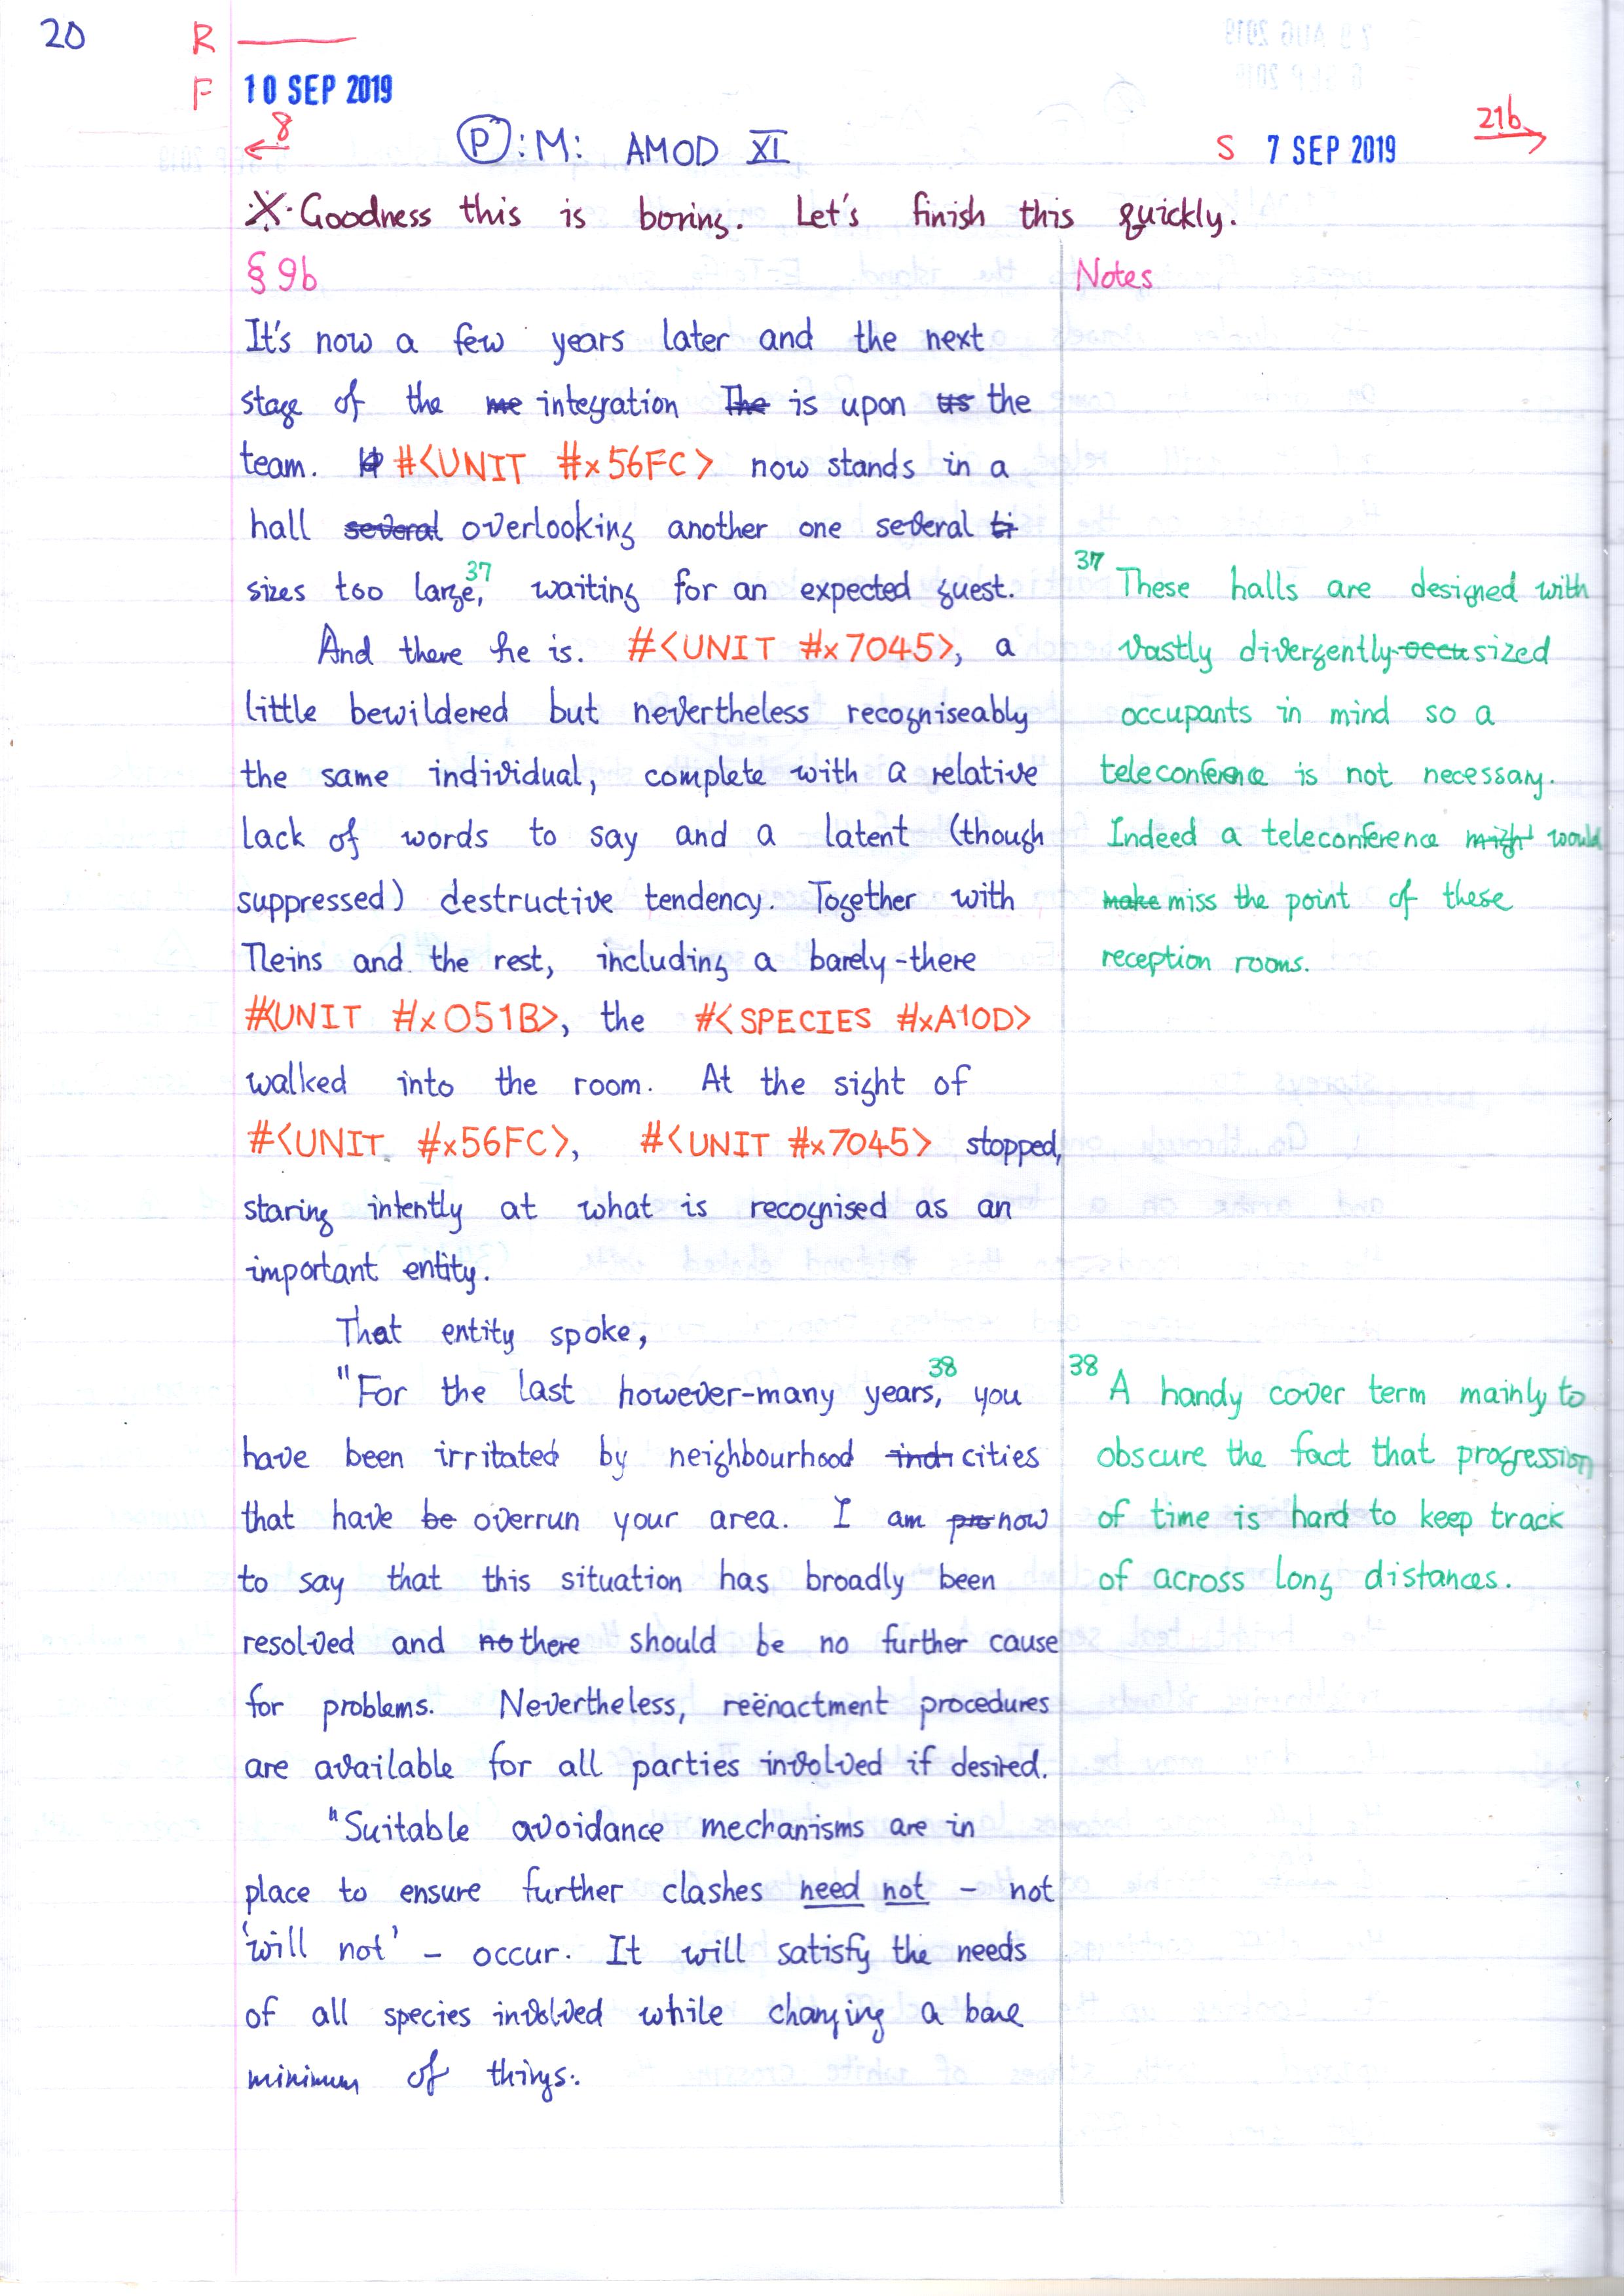 20
R
F 10 SEP 2019
8
P:M: AMOD XI
S 7 SEP 2019
21b
※ Goodness this is boring. Let's finish this quickly.
§ 9b
It's now a few years later and the next
stage of the me integration The is upon us the
team. #<UNIT #x56FC> now stands in a
hall several overlooking another one several ti
sizes too large,37 waiting for an expected guest.
And there he is. #<UNIT #x7045>, a
little bewildered but nevertheless recogniseably
the same individual, complete with a relative
lack of words to say and a latent (though
suppressed) destructive tendency. Together with
Tleins and the rest, including a barely-there
#<UNIT #x051B>, the #<SPECIES #xA10D>
walked into the room. At the sight of
#<UNIT #x56FC>, #<UNIT #x7045> stopped,
staring intently at what is recognised as an
important entity.
That entity spoke,
"For the last however-many years,38 you
have been irritated by neighbourhood indi cities
that have be overrun your area. I am pro now
to say that this situation has broadly been
resolved and no there should be no further cause
for problems. Nevertheless, reënactment procedures
are available for all parties involved if desired.
"Suitable avoidance mechanisms are in
place to ensure further clashes need not – not
'will not' – occur. It will satisfy the needs
of all species involved while changing a bare
minimum of things.
Notes
37 These halls are designed with
vastly divergently-occu sized
occupants in mind so a
teleconference is not necessary.
Indeed a teleconference might would
make miss the point of these
reception rooms.
38 A handy cover term mainly to
obscure the fact that progression
of time is hard to keep track
of across long distances.